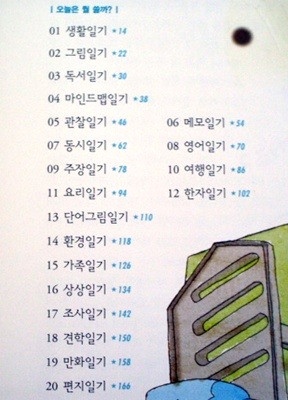 | 오늘은 뭘 쓸까? |
01 생활일기 *14
02 그림일기 *22
03 독서일기 *30
04 마인드맵일기 *38
05 관찰일기 *46 06 메모일기 *54
07 동시일기 *62 08 영어일기 *70
09 주장일기 *78 10 여행일기 *86
11 요리일기 *94 12 한자일기 *102
13 단어그림일기 *110
14 환경일기 *118
15 가족일기 *126
16 상상일기 *134
17 조사일기 *142
18 견학일기 *150
19 만화일기 *158
20 편지일기 *166